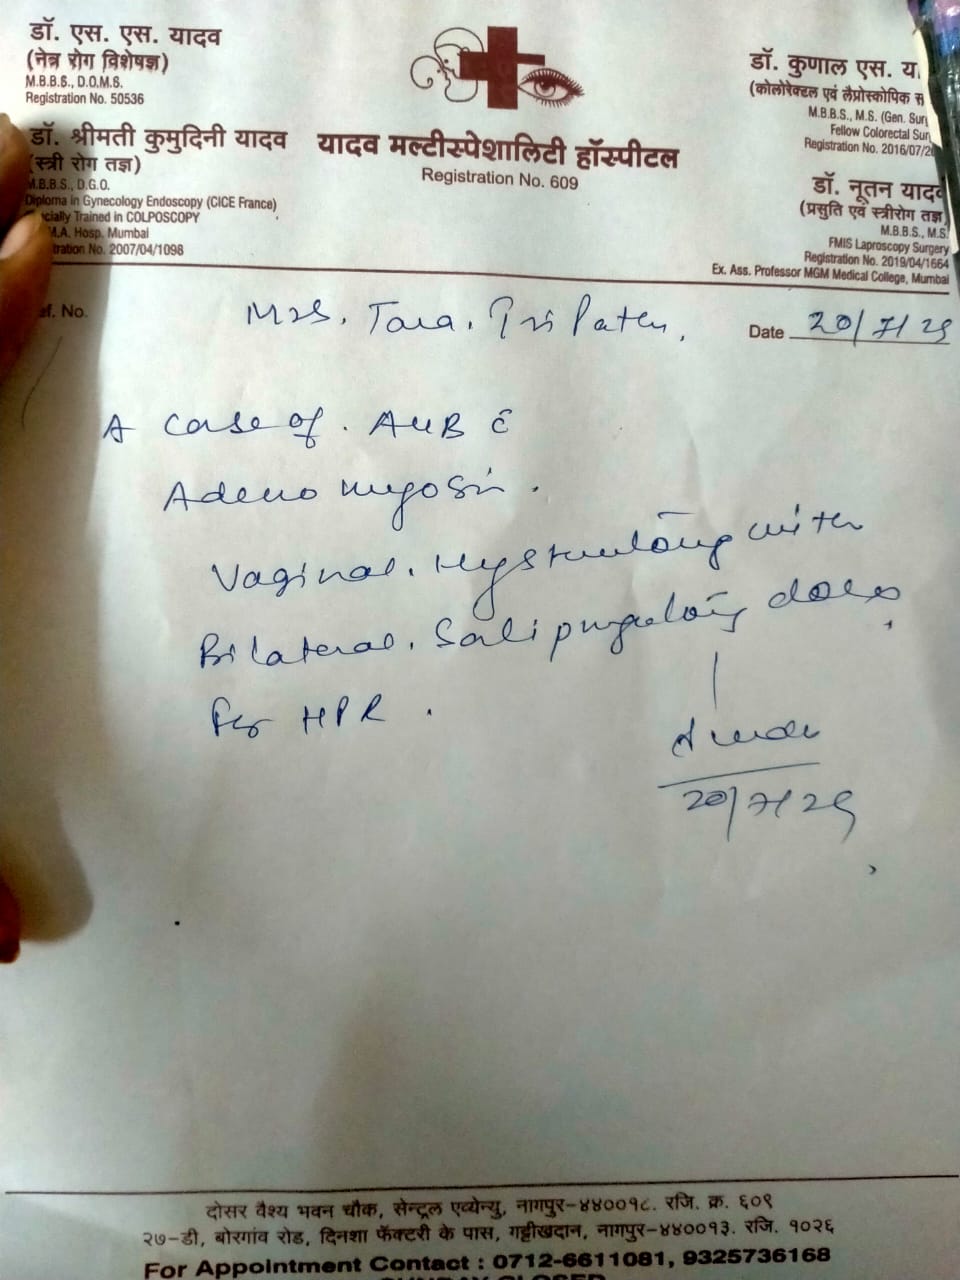 डॉ. एस. एस. यादव
(नेत्र रोग विशेषज्ञ)
M.B.B.S., D.O.M.S.
Registration No. 50536
डॉ. श्रीमती कुमुदिनी यादव
(स्त्री रोग तज्ञ)
M.B.B.S., D.G.O.
Diploma in Gynecology Endoscopy (CICE France)
cially Trained in COLPOSCOPY
M.A. Hosp. Mumbai
tration No. 2007/04/1098
यादव मल्टीस्पेशालिटी हॉस्पीटल
Registration No. 609
डॉ. कुणाल एस. य
(कोलोरेक्टल एवं लैप्रोस्कोपिक स
M.B.B.S., M.S. (Gen. Sur
Fellow Colorectal Sur
Registration No. 2016/07/2
डॉ. नूतन यादव
(प्रसुति एवं स्त्रीरोग तज्ञ
M.B.B.S., M.S.
FMIS Laproscopy Surgery
Registration No. 2019/04/1664
Ex. Ass. Professor MGM Medical College, Mumbai
ef. No.
Mrs. Tara. Tripathy,
Date 20/7/25
A case of. AUB c̄
Adenomyosis.
Vaginal. Hysterectomy with
Bilateral. Salipngectomy done,
for HPR.
20/7/25
दोसर वैश्य भवन चौक, सेन्ट्रल एव्येन्यु, नागपुर-४४००१८. रजि. क्र. ६०९
२७-डी, बोरगांव रोड, दिनशा फॅक्टरी के पास, गट्टीखदान, नागपुर-४४००१३. रजि. १०२६
For Appointment Contact : 0712-6611081, 9325736168
SUNDAY CLOSED